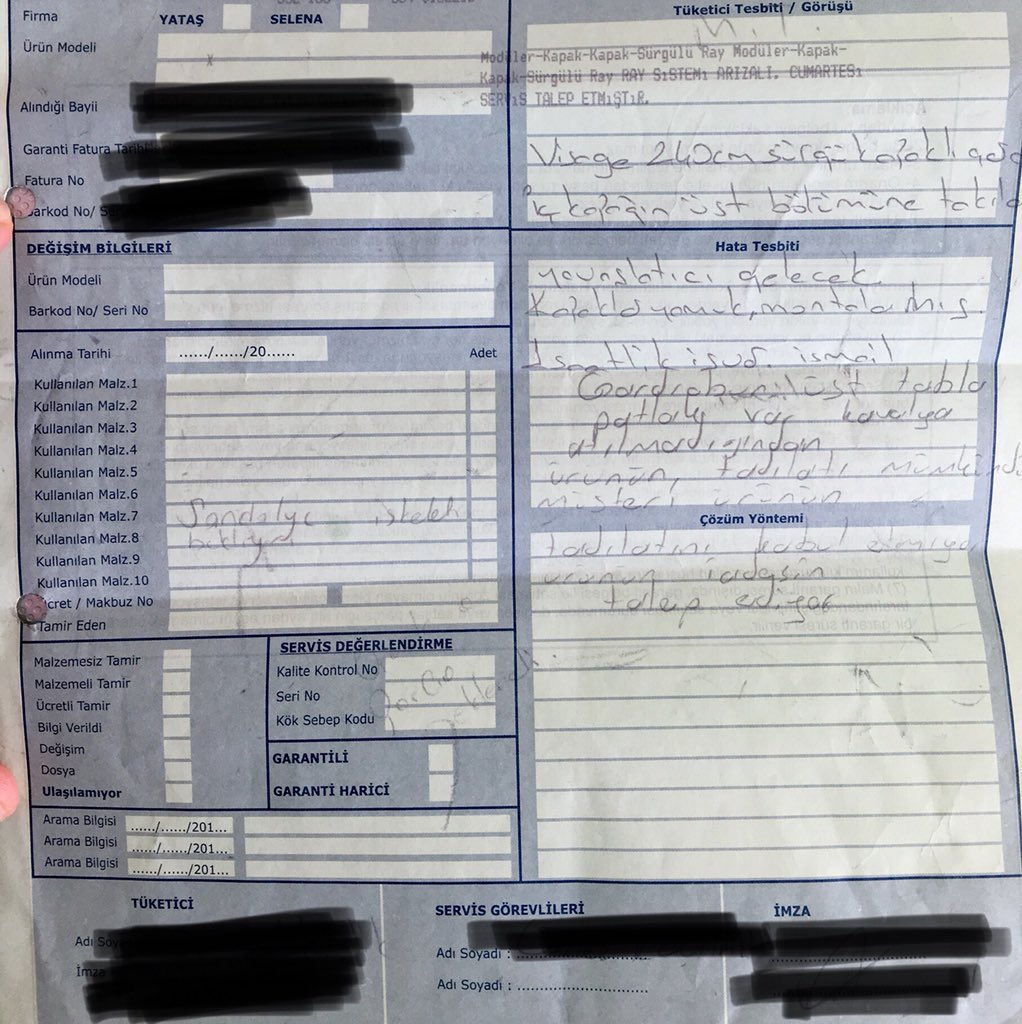 Firma
YATAŞ
SELENA
Ürün Modeli
x
Alındığı Bayii
Garanti Fatura Tarihi
Fatura No
Barkod No/
DEĞİŞİM BİLGİLERİ
Ürün Modeli
Barkod No/ Seri No
Alınma Tarihi
....../....../20......
Adet
Kullanılan Malz.1
Kullanılan Malz.2
Kullanılan Malz.3
Kullanılan Malz.4
Kullanılan Malz.5
Kullanılan Malz.6
Kullanılan Malz.7
Kullanılan Malz.8
Kullanılan Malz.9
Kullanılan Malz.10
Sandalye iskeleti
bekliyor
Ücret / Makbuz No
Tamir Eden
Malzemesiz Tamir
Malzemeli Tamir
Ücretli Tamir
Bilgi Verildi
Değişim
Dosya
Ulaşılamıyor
SERVİS DEĞERLENDİRME
Kalite Kontrol No
Seri No
Kök Sebep Kodu
GARANTİLİ
GARANTİ HARİCİ
Arama Bilgisi ....../....../201...
Arama Bilgisi ....../....../201...
Arama Bilgisi ....../....../201...
Tüketici Tesbiti / Görüşü
Modüler-Kapak-Kapak-Sürgülü Ray Modüler-Kapak-
Kapak-Sürgülü Ray RAY SıSTEMı ARIZALI. CUMARTESı
SERVıS TALEP ETMıŞTıR.
Visage 240cm sürgü kapaklı
kapağın üst bölümüne
Hata Tesbiti
yavaşlatıcı gelecek
yamuk, montalanmış.
1 saatlik ismail
üst tabla
patlak var kavelya
atılmadığından
ürünün, tadilatı
müşteri ürünün
Çözüm Yöntemi
tadilatını kabul etmiyor
ürünün iadesin
talep ediyor
TÜKETİCİ
Adı
İmza
SERVİS GÖREVLİLERİ
Adı Soyadı :
Adı Soyadı : .................................
İMZA